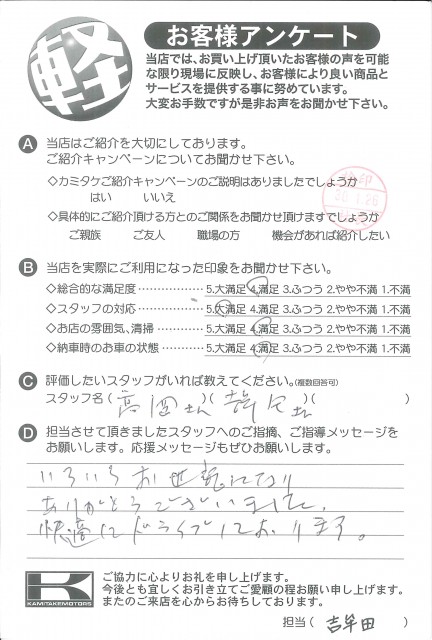 軽
お客様アンケート
当店では、お買い上げ頂いたお客様の声を可能
な限り現場に反映し、お客様により良い商品と
サービスを提供する事に努めています。
大変お手数ですが是非お声をお聞かせ下さい。
A 当店はご紹介を大切にしております。
ご紹介キャンペーンについてお聞かせ下さい。
◇カミタケご紹介キャンペーンのご説明はありましたでしょうか
はい いいえ
◇具体的にご紹介頂ける方とのご関係をお聞かせ頂けますでしょうか
ご親族 ご友人 職場の方 機会があれば紹介したい
B 当店を実際にご利用になった印象をお聞かせ下さい。
◇総合的な満足度 5.大満足 4.満足 3.ふつう 2.やや不満 1.不満
◇スタッフの対応 5.大満足 4.満足 3.ふつう 2.やや不満 1.不満
◇お店の雰囲気、清掃 5.大満足 4.満足 3.ふつう 2.やや不満 1.不満
◇納車時のお車の状態 5.大満足 4.満足 3.ふつう 2.やや不満 1.不満
C 評価したいスタッフがいれば教えてください。(複数回答可)
スタッフ名( )( )( )
D 担当させて頂きましたスタッフへのご指摘、ご指導メッセージを
お願いします。応援メッセージもぜひお願いします。
いろいろお世話になり
ありがとうございました。
快適にドライブしております。
K
KAMITAKEMOTORS
ご協力に心よりお礼を申し上げます。
今後とも宜しくお引き立てご愛顧の程お願い申し上げます。
またのご来店を心からお待ちしております。
担当( 吉牟田 )